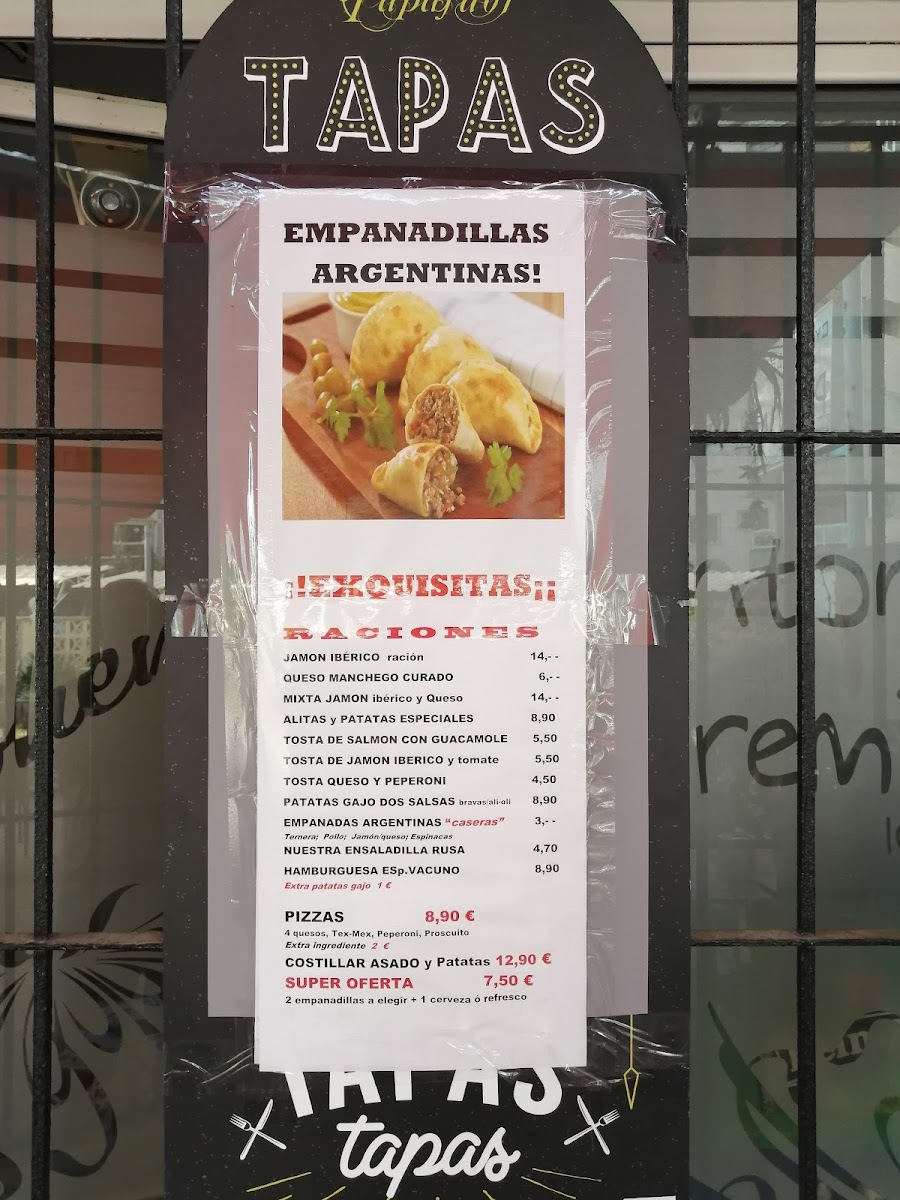 TAPAS
EMPANADILLAS
ARGENTINAS!
¡!EXQUISITAS¡¡
RACIONES
JAMON IBÉRICO ración 14,- -
QUESO MANCHEGO CURADO 6,- -
MIXTA JAMON ibérico y Queso 14,- -
ALITAS y PATATAS ESPECIALES 8,90
TOSTA DE SALMON CON GUACAMOLE 5,50
TOSTA DE JAMON IBERICO y tomate 5,50
TOSTA QUESO Y PEPERONI 4,50
PATATAS GAJO DOS SALSAS bravas/ali-oli 8,90
EMPANADAS ARGENTINAS "caseras" 3,- -
Ternera; Pollo; Jamón/queso; Espinacas
NUESTRA ENSALADILLA RUSA 4,70
HAMBURGUESA ESp.VACUNO 8,90
Extra patatas gajo 1 €
PIZZAS 8,90 €
4 quesos, Tex-Mex, Peperoni, Proscuito
Extra ingrediente 2 €
COSTILLAR ASADO y Patatas 12,90 €
SUPER OFERTA 7,50 €
2 empanadillas a elegir + 1 cerveza ó refresco
TAPAS
tapas